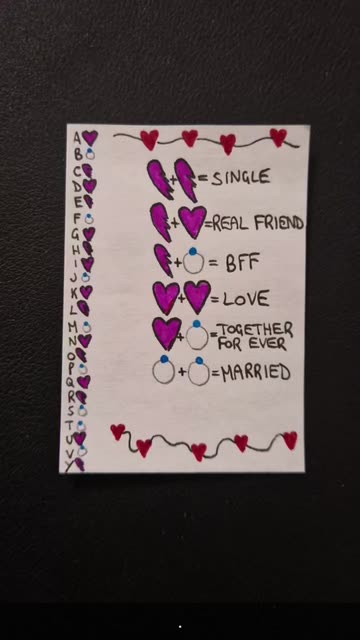 A
B
C
D
E
F
G
H
I
J
K
L
M
N
O
P
Q
R
S
T
U
V
Y
+ = SINGLE
+ =REAL FRIEND
+ = BFF
+ = LOVE
+ =TOGETHER
FOR EVER
+ =MARRIED